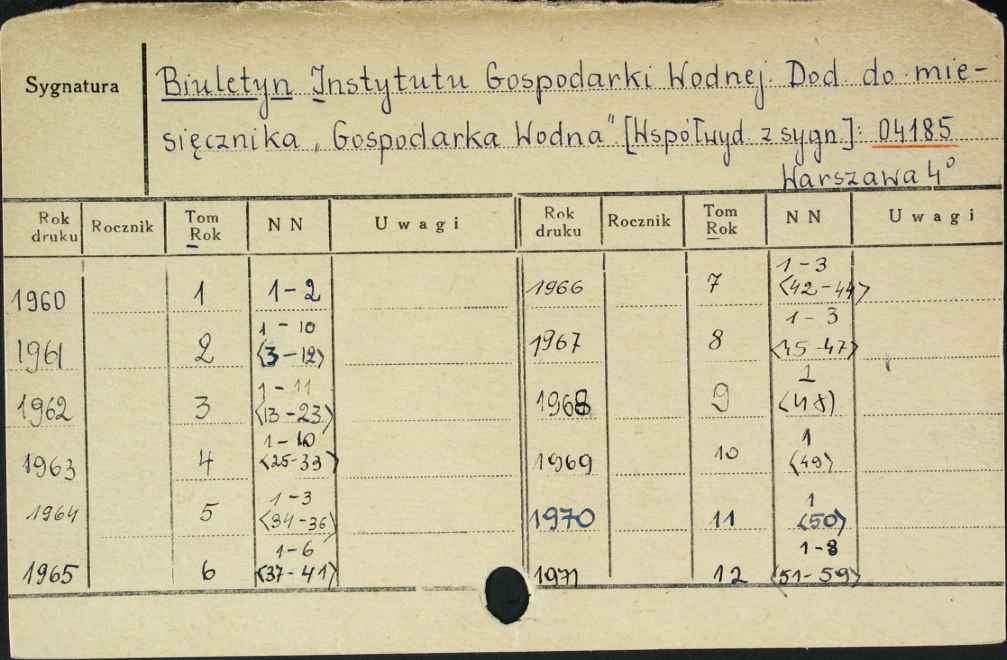 Sygnatura
Biuletyn Instytutu Gospodarki Wodnej. Dod. do mie-
sięcznika „Gospodarka Wodna" [Współwyd. z sygn.]: 04185
Warszawa 4°
Rok druku Rocznik Tom Rok NN Uwagi Rok druku Rocznik Tom Rok NN Uwagi
1960 1 1-2
1961 2 1-10 <3-12>
1962 3 1-11 <13-23>
1963 4 1-10 <25-33>
1964 5 1-3 <34-36>
1965 6 1-6 <37-41>
1966 7 1-3 <42-44>
1967 8 1-3 <45-47>
1968 9 1 <48>
1969 10 1 <49>
1970 11 1 <50>
1971 12 1-8 <51-59>